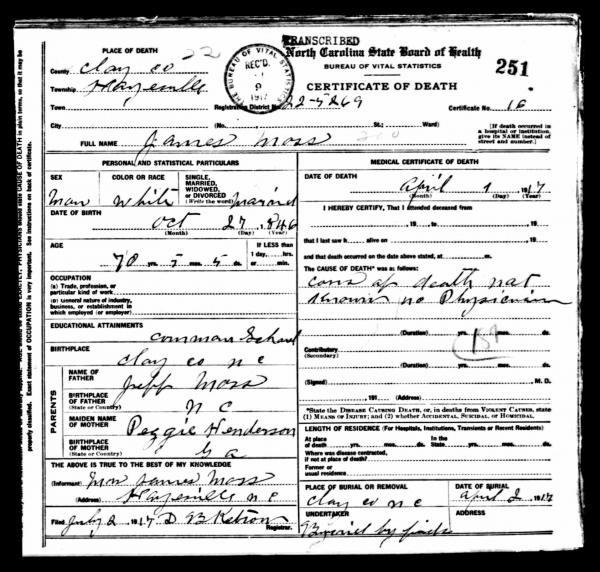 TRANSCRIBED
North Carolina State Board of Health
BUREAU OF VITAL STATISTICS
251
CERTIFICATE OF DEATH
THE BUREAU OF VITAL STATISTICS
REC'D.
9
1917
PLACE OF DEATH 22
County Clay co
Township Hayesville
Town Registration District No. 22-5269 Certificate No. 10
City (No. St.; Ward)
[If death occurred in a hospital or institution, give its NAME instead of street and number.]
FULL NAME James Moss
PERSONAL AND STATISTICAL PARTICULARS
SEX
man
COLOR OR RACE
white
SINGLE, MARRIED, WIDOWED, OR DIVORCED (Write the word)
maried
DATE OF BIRTH
Oct 27, 1846
(Month) (Day) (Year)
AGE
70 yrs. 5 mos. 5 ds.
If LESS than 1 day,....hrs. or min.
OCCUPATION
(a) Trade, profession, or particular kind of work
(b) General nature of industry, business, or establishment in which employed (or employer)
EDUCATIONAL ATTAINMENTS
common School
BIRTHPLACE
Clay co n c
PARENTS
NAME OF FATHER
Jeff Moss
BIRTHPLACE OF FATHER (State or Country)
N C
MAIDEN NAME OF MOTHER
Peggie Henderson
BIRTHPLACE OF MOTHER (State or Country)
Ga
THE ABOVE IS TRUE TO THE BEST OF MY KNOWLEDGE
(Informant) James Moss
(Address) Hayesville n c
Filed July 2 1917 D B Ketron Registrar.
MEDICAL CERTIFICATE OF DEATH
DATE OF DEATH
April 1, 1917
(Month) (Day) (Year)
I HEREBY CERTIFY, That I attended deceased from
, 19 , to , 19 ,
that I last saw h alive on , 19 ,
and that death occurred on the date above stated, at m.
The CAUSE OF DEATH* was as follows:
caus of death not
known no Physician
(Duration) yrs. mos. ds.
Contributory
(Secondary)
(Duration) yrs. mos. ds.
(Signed) M. D.
, 191 (Address)
*State the DISEASE CAUSING DEATH, or, in deaths from VIOLENT CAUSES, state (1) MEANS OF INJURY; and (2) whether ACCIDENTAL, SUICIDAL, OR HOMICIDAL.
LENGTH OF RESIDENCE (For Hospitals, Institutions, Transients or Recent Residents)
At place of death yrs. mos. ds. In the State yrs. mos. ds.
Where was disease contracted, if not at place of death?
Former or usual residence
PLACE OF BURIAL OR REMOVAL
Clay co n c
DATE OF BURIAL
April 2 1917
UNDERTAKER
ADDRESS